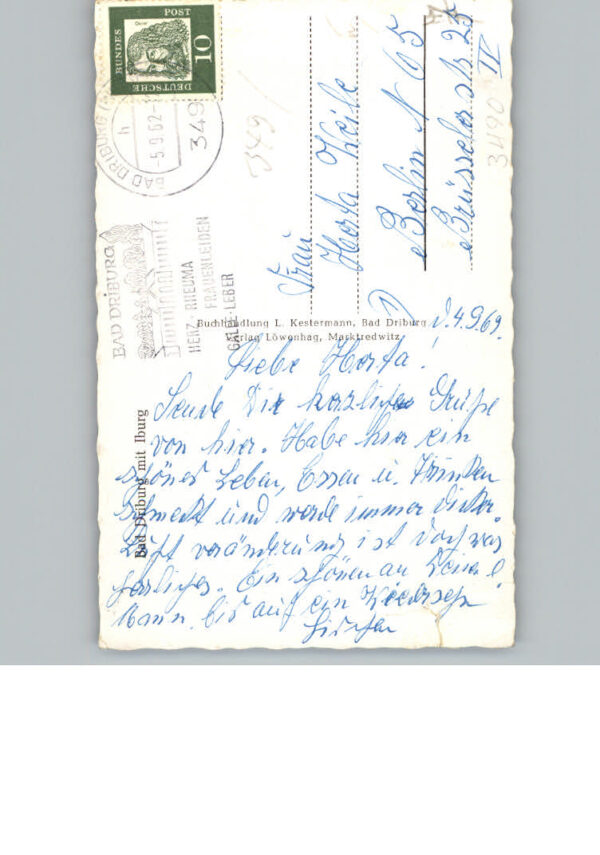 DEUTSCHE
BUNDES
POST
10
BAD DRIBURG
h
-5.9.62-
349
BAD DRIBURG
HERZ · RHEUMA
FRAUENLEIDEN
GALLE · LEBER
349
Frau
Herta
Berlin N 65
Brüsseler str 25
IV
3490
1)
Buchhandlung L. Kestermann, Bad Driburg
Verlag Löwenhag, Marktredwitz
Bad Driburg mit Iburg
d. 4.9.62.
Liebe Herta!
Sende Dir herzliche Grüße
von hier. Habe hier ein
schönes Leben, Essen u. Trinken
schmeckt und werde immer dicker.
Luft veränderung ist doch was
herliches. Ein schönen an
Mann, bis auf ein Wiedersehn